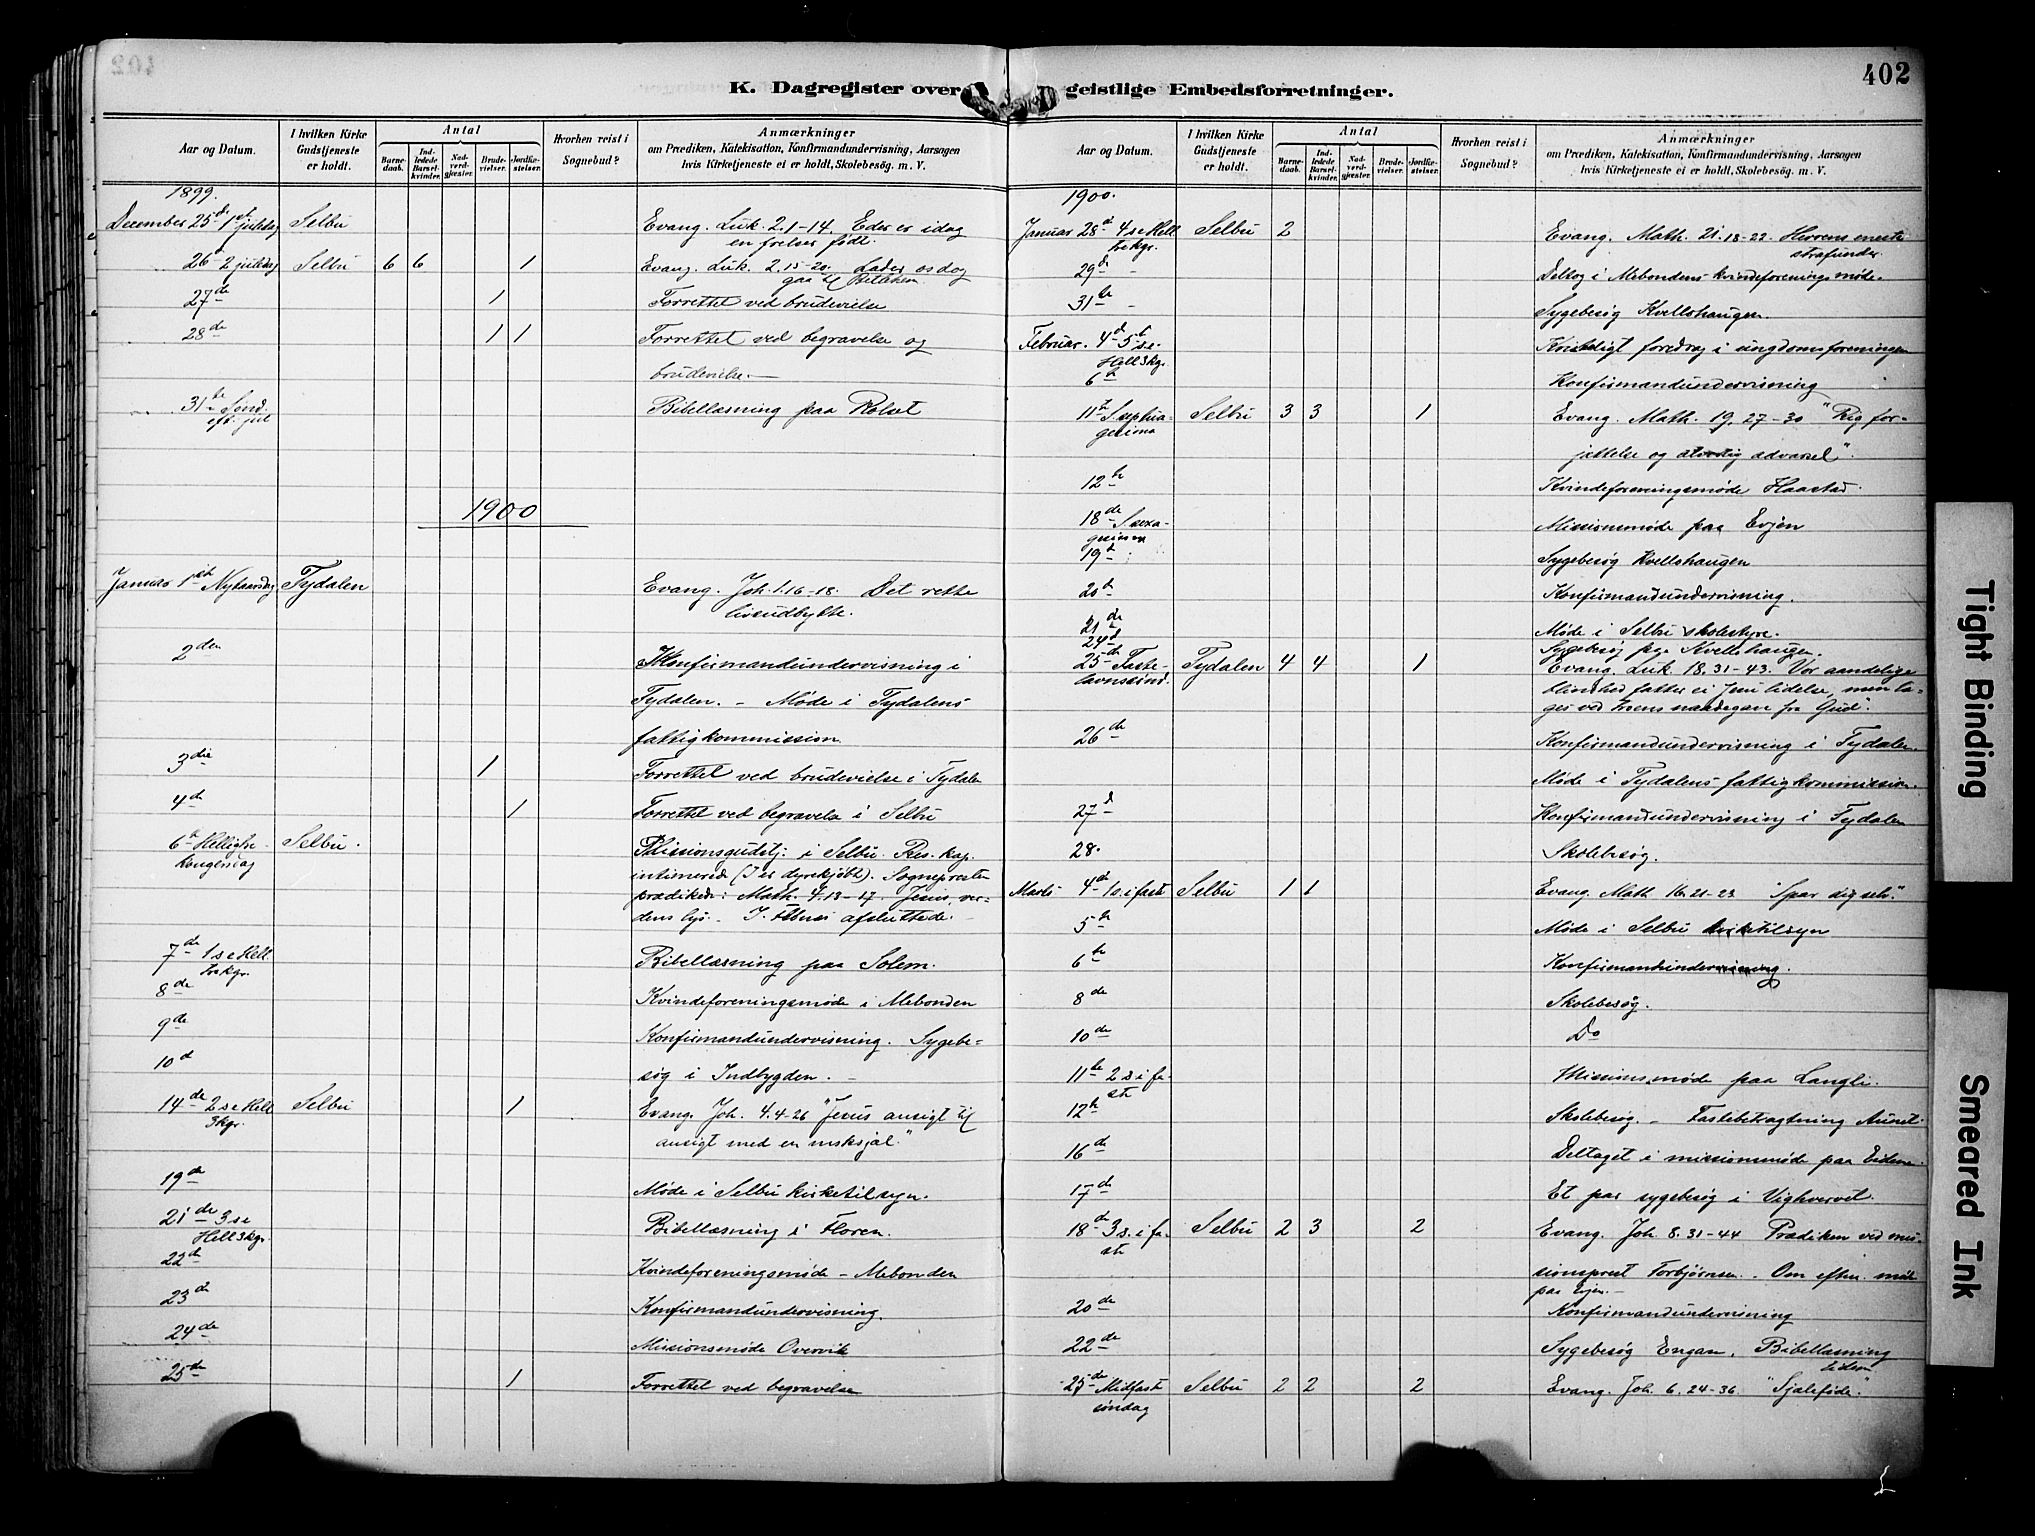 402
K. Dagregister over
geistlige Embedsforretninger.
Aar og Datum.
I hvilken Kirke Gudstjeneste er holdt.
Antal
Barne-daab.
Ind-ledede Barsel-kvinder.
Nad-verd-gjæster.
Brude-vielser.
Jordfæ-stelser.
Hvorhen reist i Sognebud?
Anmærkninger
om Prædiken, Katekisation, Konfirmandundervisning, Aarsagen
hvis Kirketjeneste ei er holdt, Skolebesög. m. V.
1899.
December 25de 1st juledag Selbu Evang. Luk. 2.1-14. Eder er idag
en frelser født.
26d 2 juledag Selbu 6 6 1 Evang. Luk. 2.15-20. Lader os dog
gaa til Betlehem.
27de 1 Forrettet ved brudevielse
28de 1 1 Forrettet ved begravelse og
brudevielse.
31te Sønd. eft. jul Bibellæsning paa Rolset
1900
Januar 1ste Nytaarsdag Tydalen Evang. Joh. 1.16-18. Det rette
livsudbytte.
2den Konfirmandundervisning i
Tydalen. - Møde i Tydalens
fattigkommission.
3die 1 Forrettet ved brudevielse i Tydalen
4de 1 Forrettet ved begravelse i Selbu
6te Helligtre-kongersdag Selbu. Missionsgudstj. i Selbu. Res. kap.
intonerede (I es dyrekjøbt). Sognepresten
prædiken: Math. 4.13-17. Jesus, ver-
dens lys. - afsluttede.
7de 1 s e Hell. trekgr. Bibellæsning paa Solem.
8de Kvindeforeningsmøde i Mebonden
9de Konfirmandundervisning. Sygebe-
10d søg i Indbygden. -
14de 2 s e Hell 3kgr. Selbu 1 Evang. Joh. 4.4-26 "Jesus ansigt til
ansigt med en msksjæl."
19de Møde i Selbu kirketilsyn.
21de 3 s e Hell 3kgr. Bibellæsning i Floren.
22de Kvindeforeningsmøde - Mebonden
23de Konfirmandundervisning.
24de Missionsmøde Overvik
25de 1 Forrettet ved begravelse
Aar og Datum.
I hvilken Kirke Gudstjeneste er holdt.
Antal
Barne-daab.
Ind-ledede Barsel-kvinder.
Nad-verd-gjæster.
Brude-vielser.
Jordfæ-stelser.
Hvorhen reist i Sognebud?
Anmærkninger
om Prædiken, Katekisation, Konfirmandundervisning, Aarsagen
hvis Kirketjeneste ei er holdt, Skolebesög. m. V.
1900.
Januar 28d 4 s e Hell trekgr. Selbu 2 Evang. Math. 21.18-22. Herrens eneste
strafunder.
29d - Deltog i Mebondens kvindeforenings møde.
31te - Sygebesøg Kvellohaugen.
Februar. 4d 5te s e. Hell 3kgr. Kristeligt foredrag i ungdomsforeningen
6te Konfirmandundervisning
11te S. septua-gesima Selbu 3 3 1 Evang. Math. 19.27-30 "Rig for-
jættelse og alvorlig advarsel".
12te Kvindeforeningsmøde Haastad.
18de S. sexa-gesima Missionsmøde paa Evjen
19d Sygebesøg Kvellohaugen
20de Konfirmandundervisning.
21de Møde i Selbu skolestyre.
24d Sygebesøg Kvellohaugen.
25de Faste-lavnssønd. Tydalen 4 4 1 Evang. Luk. 18.31-43. Vor aandelige
blindhed fatter ei Jesu lidelse, men ta-
ges ved troens naadegave fra Gud.
26de Konfirmandundervisning i Tydalen.
Møde i Tydalens fattigkommission.
27d Konfirmandundervisning i Tydalen
28. Skolebesøg.
Marts 4de 1 s. i fast Selbu 1 1 Evang. Math 16.21-23 "Spar dig selv."
5te Møde i Selbu kirketilsyn
6te Konfirmandundervisning.
8de Skolebesøg.
10de Do
11te 2 s i fa-ste Missionsmøde paa Langli.
12te Skolebesøg. - Fastebetragtning Aunet.
16de Deltaget i missionsmøde paa Eidem.
17de Et par sygebesøg i Vighvervet.
18de 3 s. i fa-ste Selbu 2 3 2 Evang. Joh. 8.31-44 Prædiken ved mis-
sionsprest Torbjørnsen. Om efterm. møde
paa Evjen.
20de Konfirmandundervisning
22de Sygebesøg Engan. Bibellæsning
Eidem
25de Midfaste søndag Selbu 2 2 2 Evang. Joh. 6.24-36 "Sjæleføde."
Tight Binding
Smeared Ink